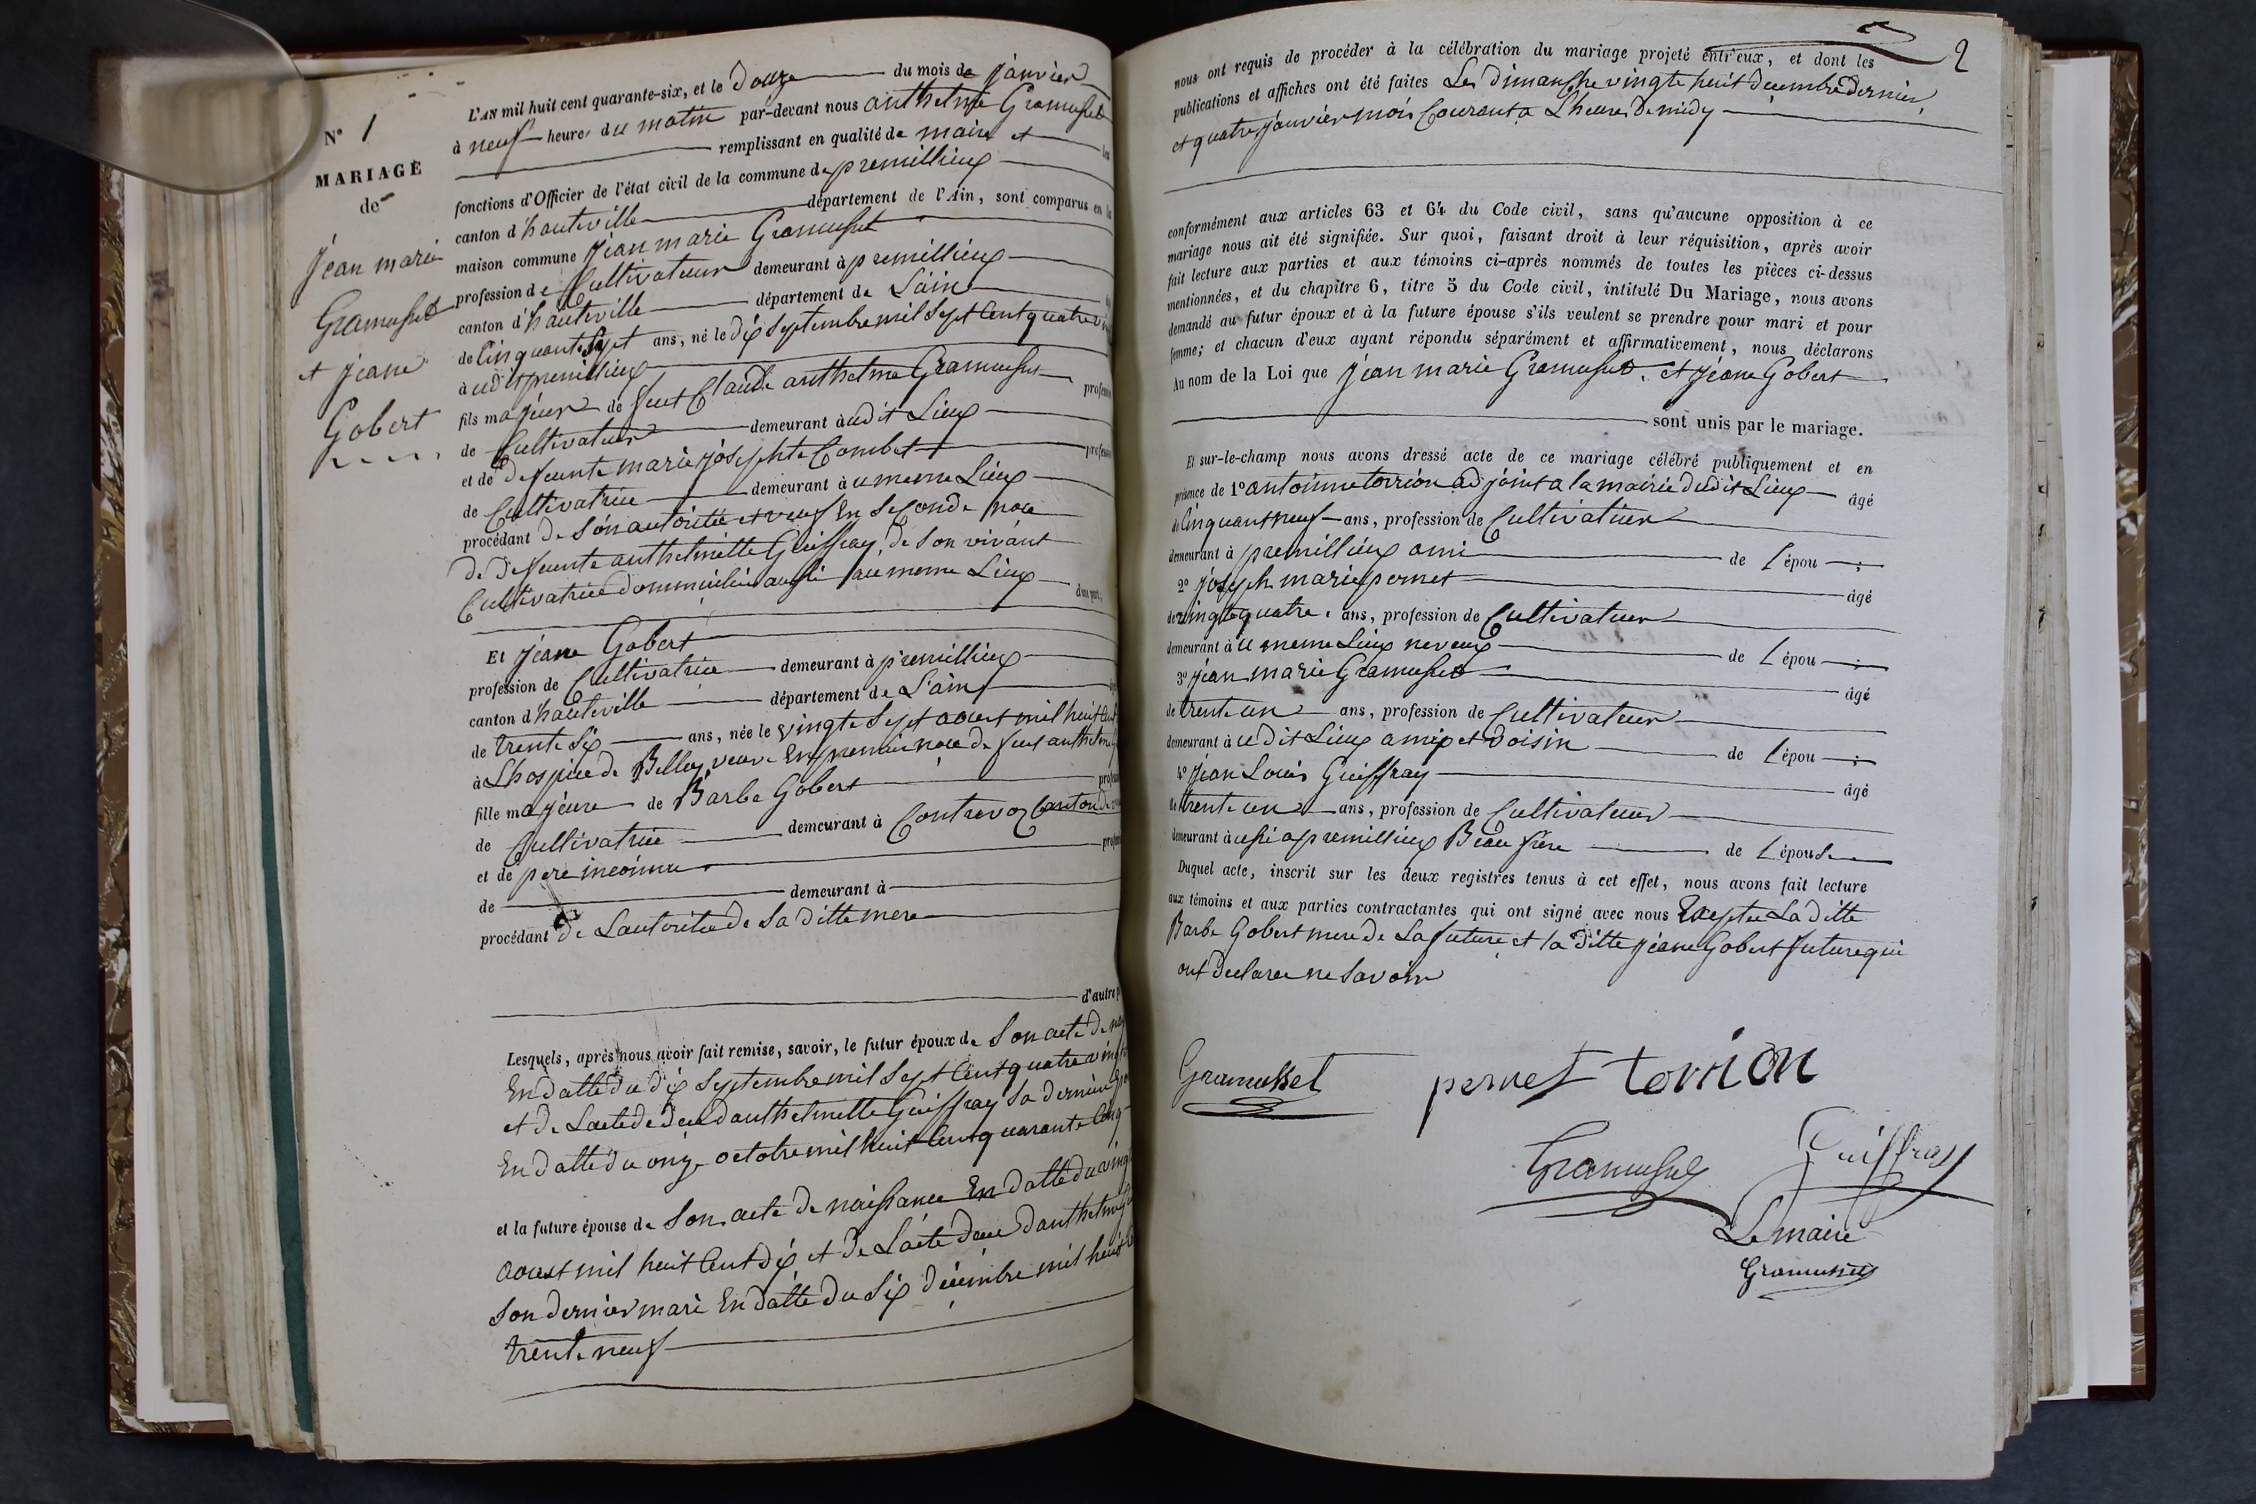 N° 1
MARIAGE
de
jean marie
Gramusset
et jeane
Gobert
L'AN mil huit cent quarante-six, et le douze du mois de janvier
à neuf heures du matin par-devant nous anthelme Gramusset
remplissant en qualité de maire et les
fonctions d'Officier de l'état civil de la commune de premillieux
canton d'hauteville département de l'Ain, sont comparus en la
maison commune jean marie Gramusset
profession de Cultivateur demeurant à premillieux
canton d'hauteville département de L'ain
de Cinquante Sept ans, né le dix Septembre mil Sept Cent quatre vin
à udit premillieux
fils majeur de feut Claude anthelme Gramusset profession
de Cultivateur demeurant à udit Lieux
et de defeunte marie josephte Combet profession
de Cultivatrice demeurant à u meme Lieux
procédant de Son autoritée et veuf En Seconde noce
de defeunte anthelmette Guiffray, de Son vivant
Cultivatrice domiciliée aussi au meme Lieux d'une part,
Et jeane Gobert
profession de Cultivatrice demeurant à premillieux
canton d'hauteville département de L'ain
de trente Six ans, née le vingt Sept aoust mil huit Cent
à Lhospice de Belley veuve En premier noce de feut anthelme
fille majeure de Barbe Gobert profession
de Cultivatrice demeurant à Contrevoz Canton de
et de pere inconnu profession
de demeurant à
procédant de Lautoritée de Sa ditte mere
d'autre p
Lesquels, après nous avoir fait remise, savoir, le futur époux de Son acte de
En datte du dix Septembre mil Sept Cent quatre vingt
et de Lacte de deces danthelmette Guiffray Sa derniere
En datte du onze octobre mil huit Cent quarante Cinq
et la future épouse de Son acte de naissance En datte du vingt
aoust mil huit Cent dix et de Lacte deces danthelme
Son dernier mari En datte du Six décembre mil huit
trente neuf
2
nous ont requis de procéder à la célébration du mariage projeté entr'eux, et dont les
publications et affiches ont été faites Les dimanche vingte huit decembre dernier,
et quatre janvier mois Courant a Lheure de midy
conformément aux articles 63 et 64 du Code civil, sans qu'aucune opposition à ce
mariage nous ait été signifiée. Sur quoi, faisant droit à leur réquisition, après avoir
fait lecture aux parties et aux témoins ci-après nommés de toutes les pièces ci-dessus
mentionnées, et du chapitre 6, titre 5 du Code civil, intitulé Du Mariage, nous avons
demandé au futur époux et à la future épouse s'ils veulent se prendre pour mari et pour
femme; et chacun d'eux ayant répondu séparément et affirmativement, nous déclarons
Au nom de la Loi que jean marie Gramusset. et jeane Gobert
sont unis par le mariage.
Et sur-le-champ nous avons dressé acte de ce mariage célébré publiquement et en
présence de 1° antoinne torrion adjoint a la mairie dudit Lieux âgé
de Cinquant neuf ans, profession de Cultivateur
demeurant à premillieux ami de L'épou ;
2° joseph marie pernet âgé
de vingt quatre ans, profession de Cultivateur
demeurant à u meme Lieux neveux de L'épou ;
3° jean marie Gramusset âgé
de trente un ans, profession de Cultivateur
demeurant à udit Lieux amis et voisin de L'épou ;
4° jean Louis Guiffray âgé
de trente un ans, profession de Cultivateur
demeurant à ussi a premillieux Beau frere de L'épouse
Duquel acte, inscrit sur les deux registres tenus à cet effet, nous avons fait lecture
aux témoins et aux parties contractantes qui ont signé avec nous Exceptee La ditte
Barbe Gobert mere de La future, et la ditte jeane Gobert future qui
ont declaree ne Savoir
Gramusset pernet torrion
Gramusset Guiffray
Le maire
Gramusset